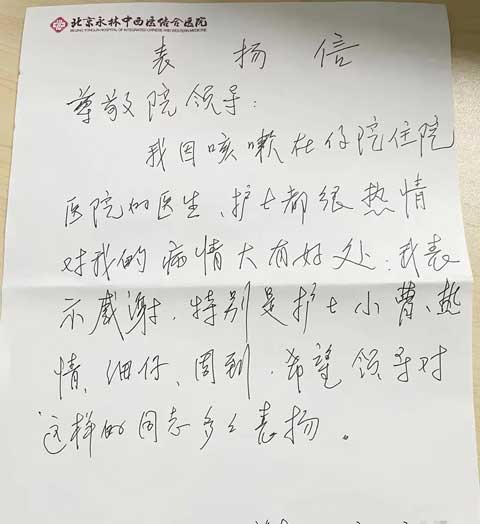 北京永林中西医结合医院
BEIJING YONGLIN HOSPITAL OF INTEGRATED CHINESE AND WESTERN MEDICINE
表扬信
尊敬院领导：
我因咳嗽在仔院住院
医院的医生、护士都很热情
对我的病情大有好处．我表
示感谢．特别是护士小曹、热
情、细仔、周到．希望领导对
这样的同志多多表扬。